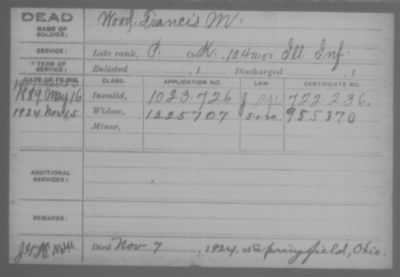 DEAD
NAME OF SOLDIER:
Wood, Francis M.
SERVICE:
Late rank, P. Co K, 104 Ill. Inf.
TERM OF SERVICE:
Enlisted , 1 Discharged , 1
DATE OF FILING. CLASS. APPLICATION NO. LAW. CERTIFICATE NO.
1889 May 16 Invalid, 1023.726 722.236.
1924 Nov 15 Widow, 1225707 955870
Minor,
ADDITIONAL SERVICES:
REMARKS:
Died Nov 7, 1924, at Springfield, Ohio.